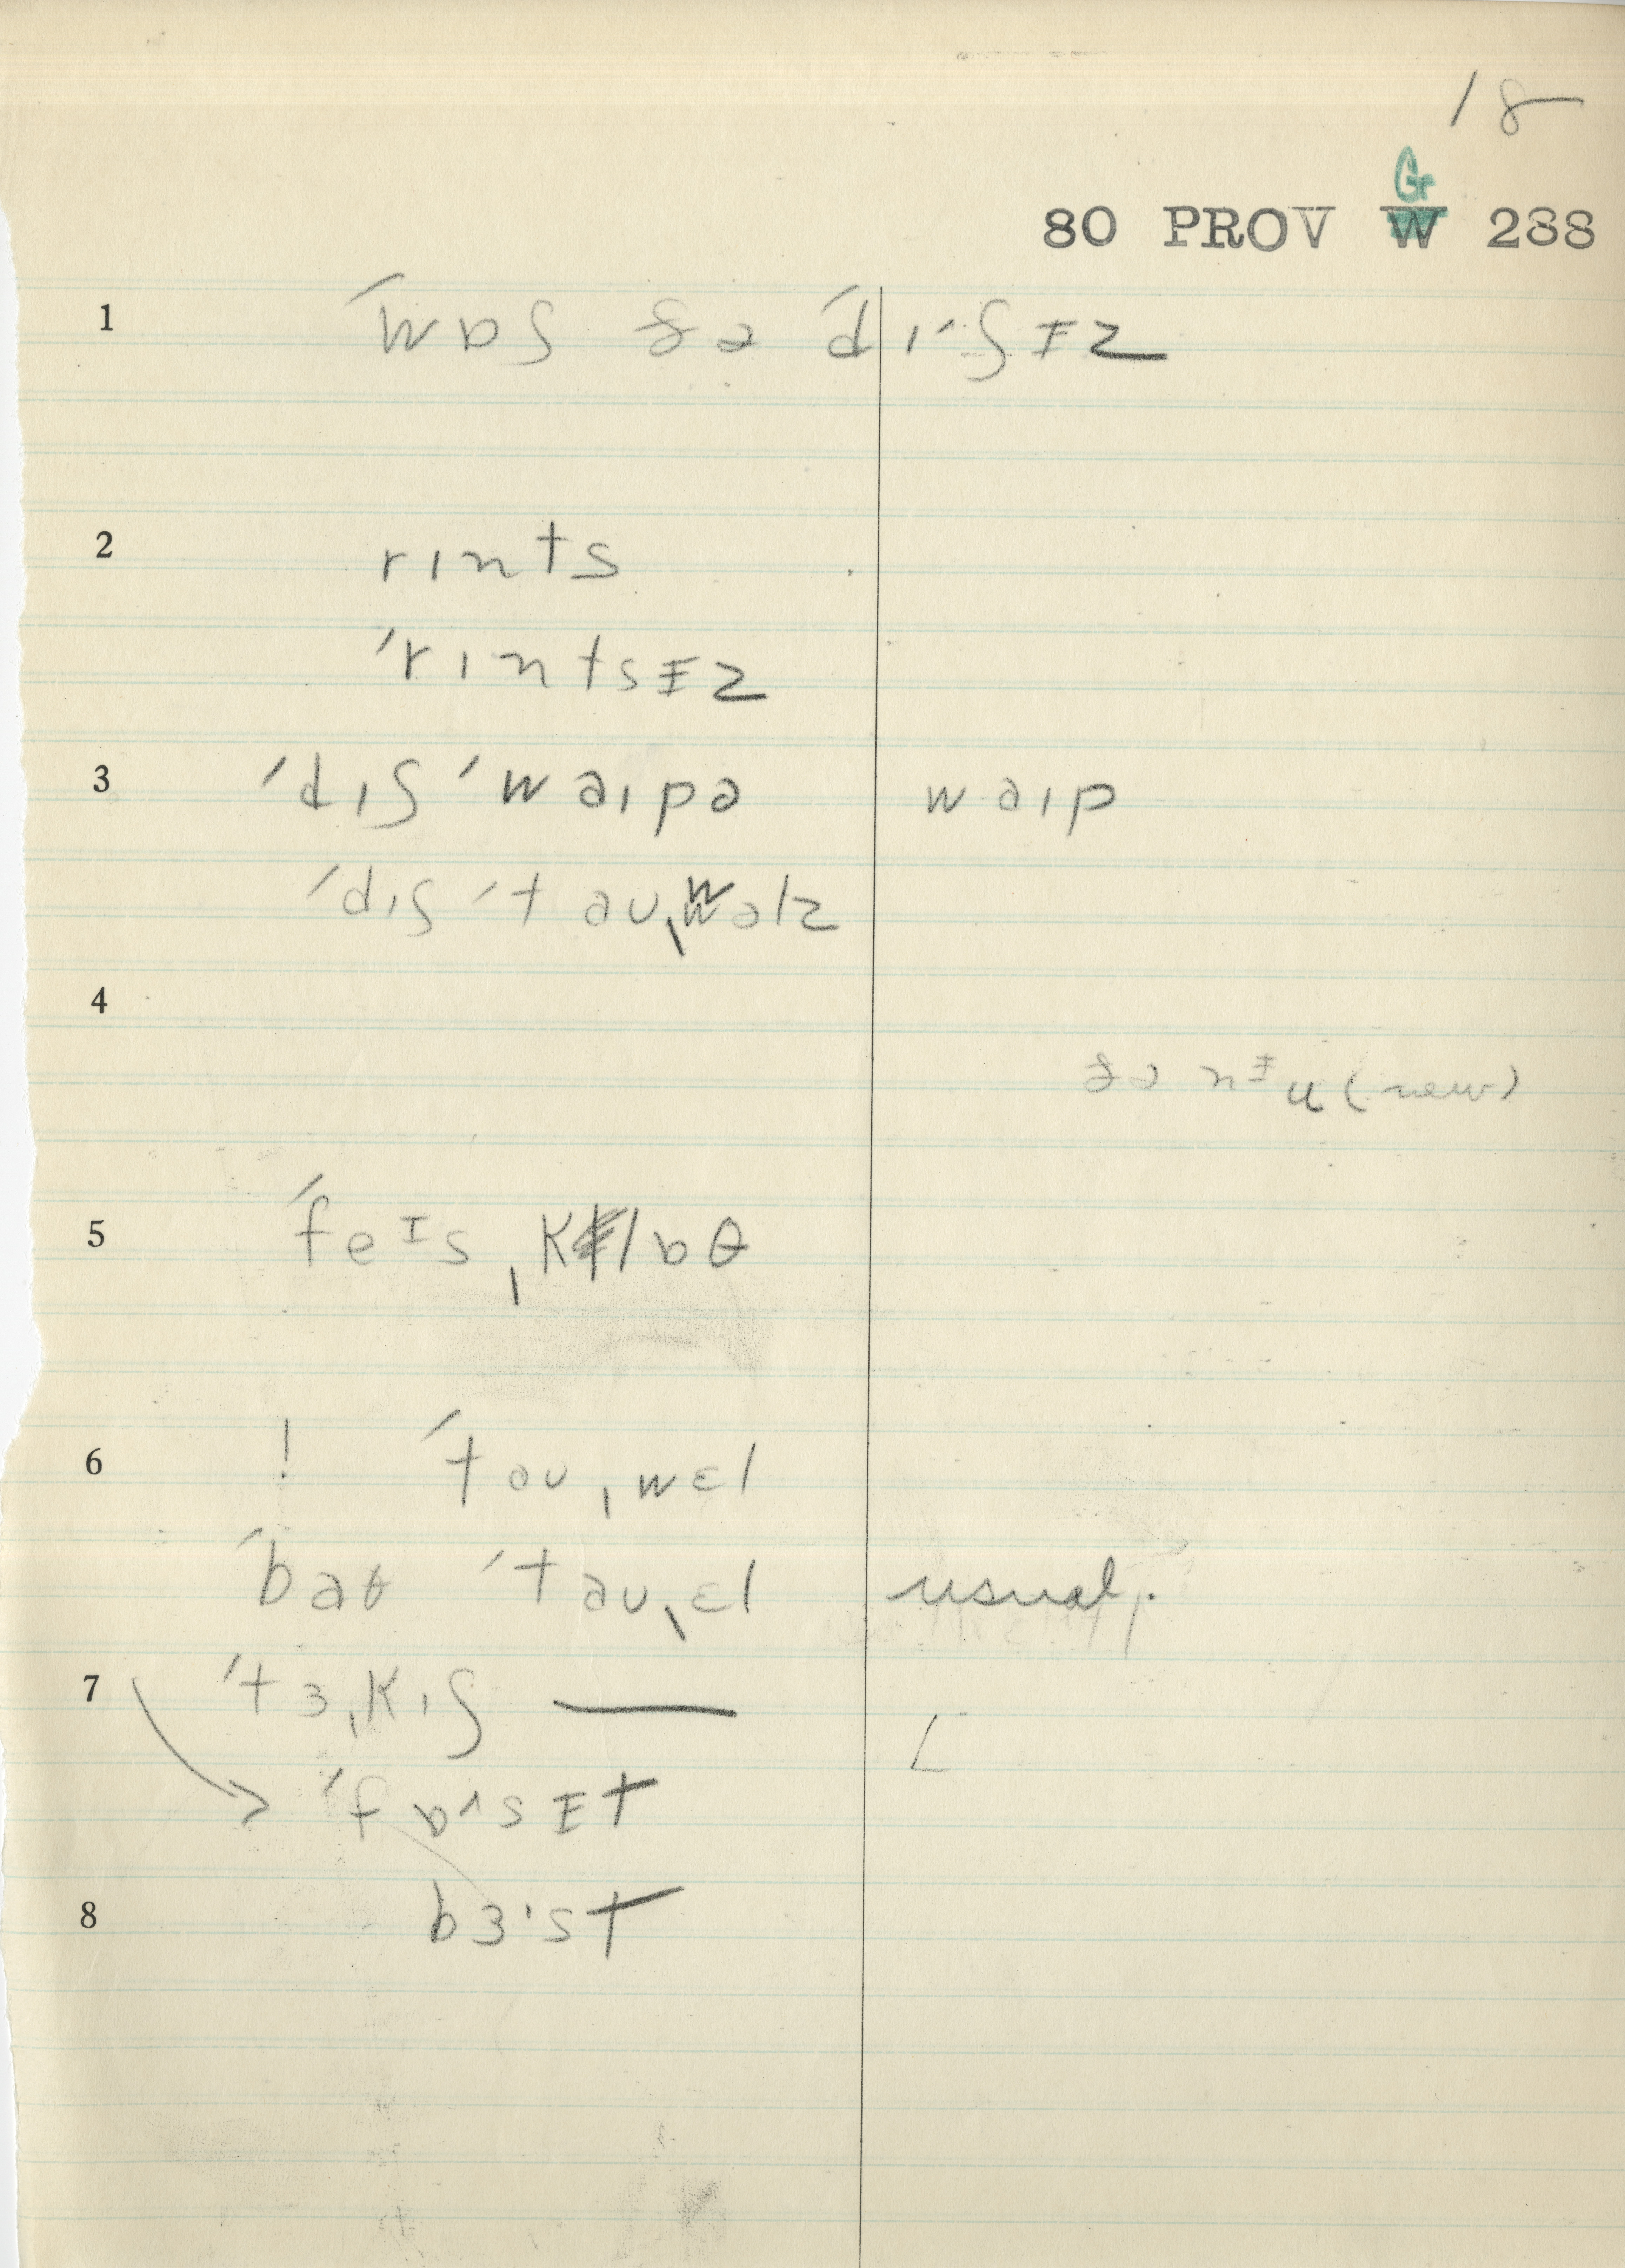 18
Gr
80 PROV W 288
1 ´wɒʃ ðə ´dɪˑʃɪz
2 rɪnts
´rɪntsɪz
3 ´dɪʃ ´waɪpə waɪp
´dɪʃ ´taʊˌwəlz
4
ðə nɪu (new)
5 ´feɪsˌklɒθ
6 ! ´taʊˌwɛl
´baθ ´taʊˌɛl usual.
7 ´tɜˌkɪʃ —
´fɒˑsɪt
8 bɜˑst